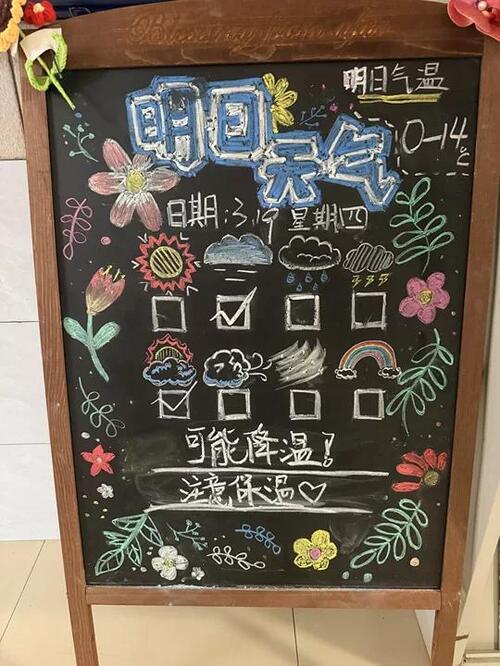 明日天气
明日气温
0-14℃
日期:3.19 星期四
可能降温!
注意保温♡